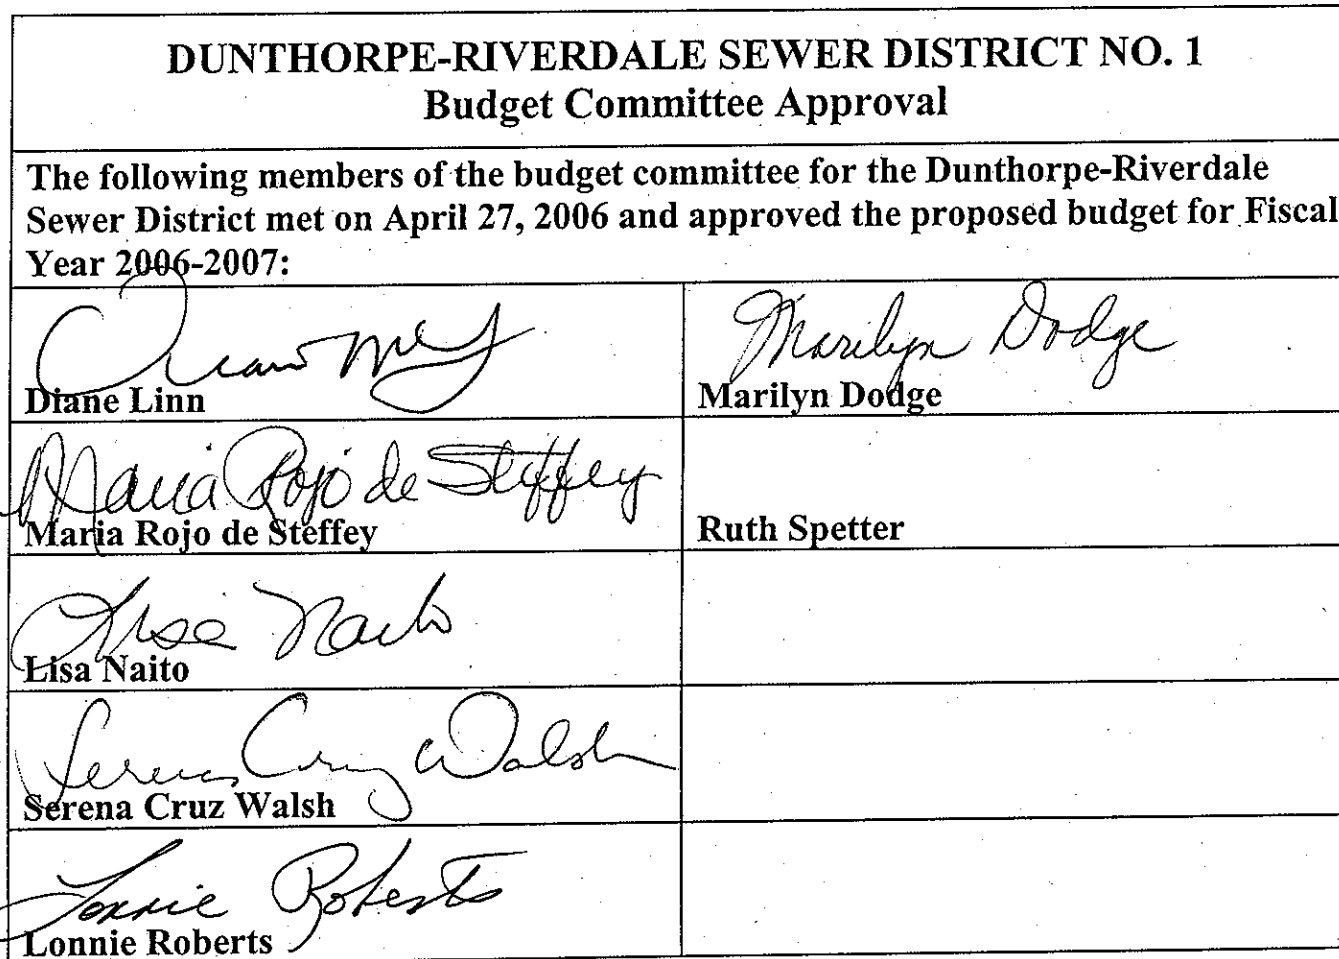 DUNTHORPE-RIVERDALE SEWER DISTRICT NO. 1
Budget Committee Approval
The following members of the budget committee for the Dunthorpe-Riverdale
Sewer District met on April 27, 2006 and approved the proposed budget for Fiscal
Year 2006-2007:
Diane Linn
Marilyn Dodge
Marilyn Dodge
Maria Rojo de Steffey
Maria Rojo de Steffey
Ruth Spetter
Lisa Naito
Lisa Naito
Serena Cruz Walsh
Serena Cruz Walsh
Lonnie Roberts
Lonnie Roberts